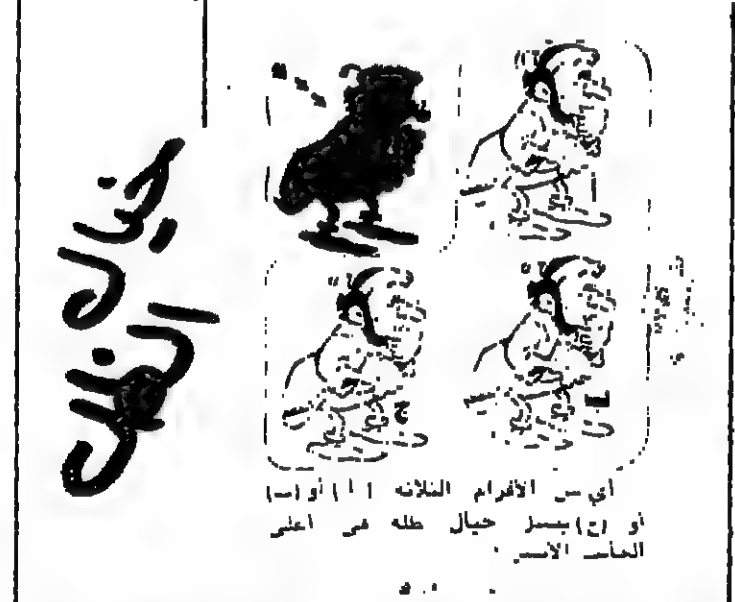 خيال الظل
أي من الأقزام الثلاثة (أ) أو (ب)
أو (ج) خيال ظله في أعلى
الجانب الأيسر